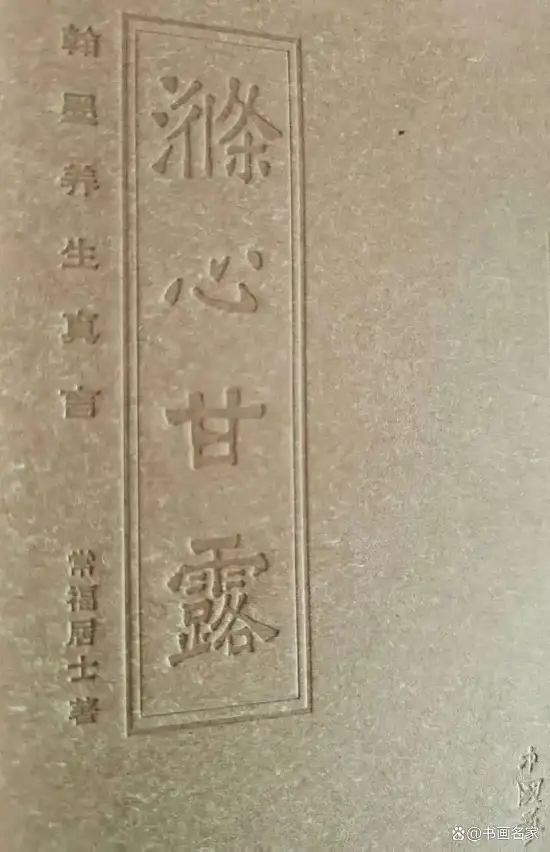 滌心甘露
翰墨养生真言
常福居士著
中國
书画名家